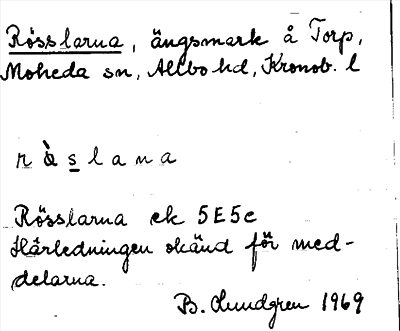 Rösslarna, ängsmark å Torp,
Moheda sn, Allbo hd, Kronob. l
r ò s l a n a
Rösslarna ek 5E5c
Härledningen okänd för med-
delarna.
B. Lundgren 1969